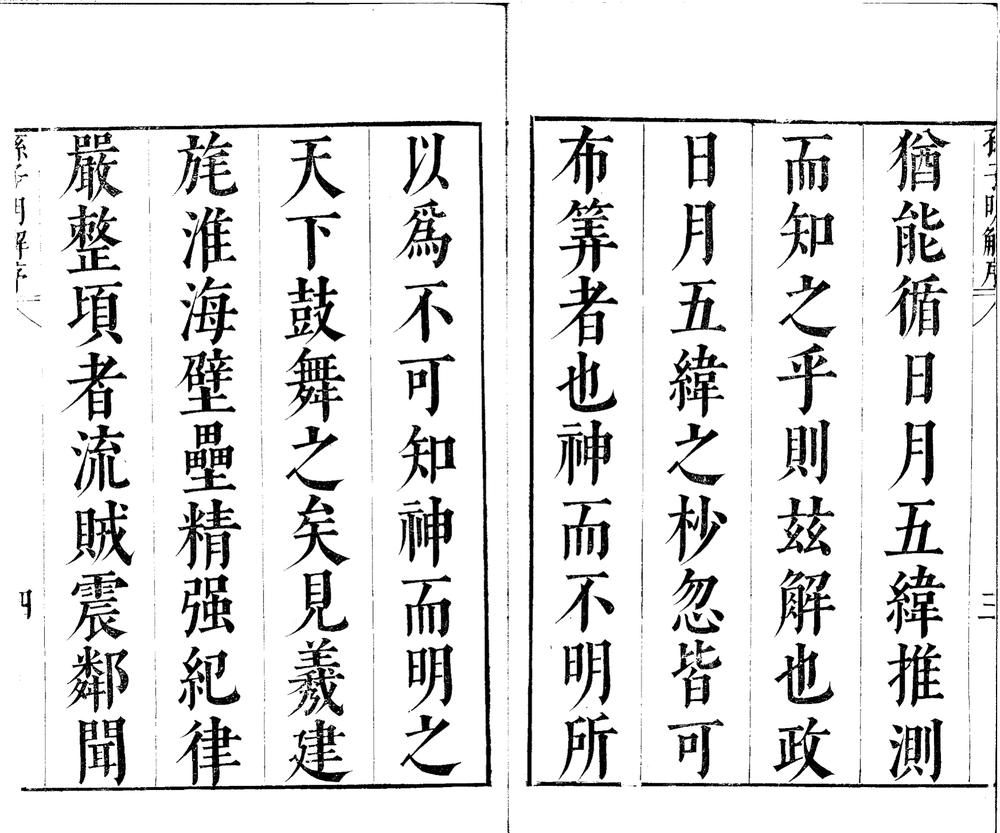 孫子明解序 三
猶能循日月五緯推測
而知之乎則茲解也政
日月五緯之杪忽皆可
布筭者也神而不明所
以爲不可知神而明之
天下鼓舞之矣見羲建
旄淮海壁壘精强紀律
嚴整頃者流賊震鄰聞
孫子明解序 四